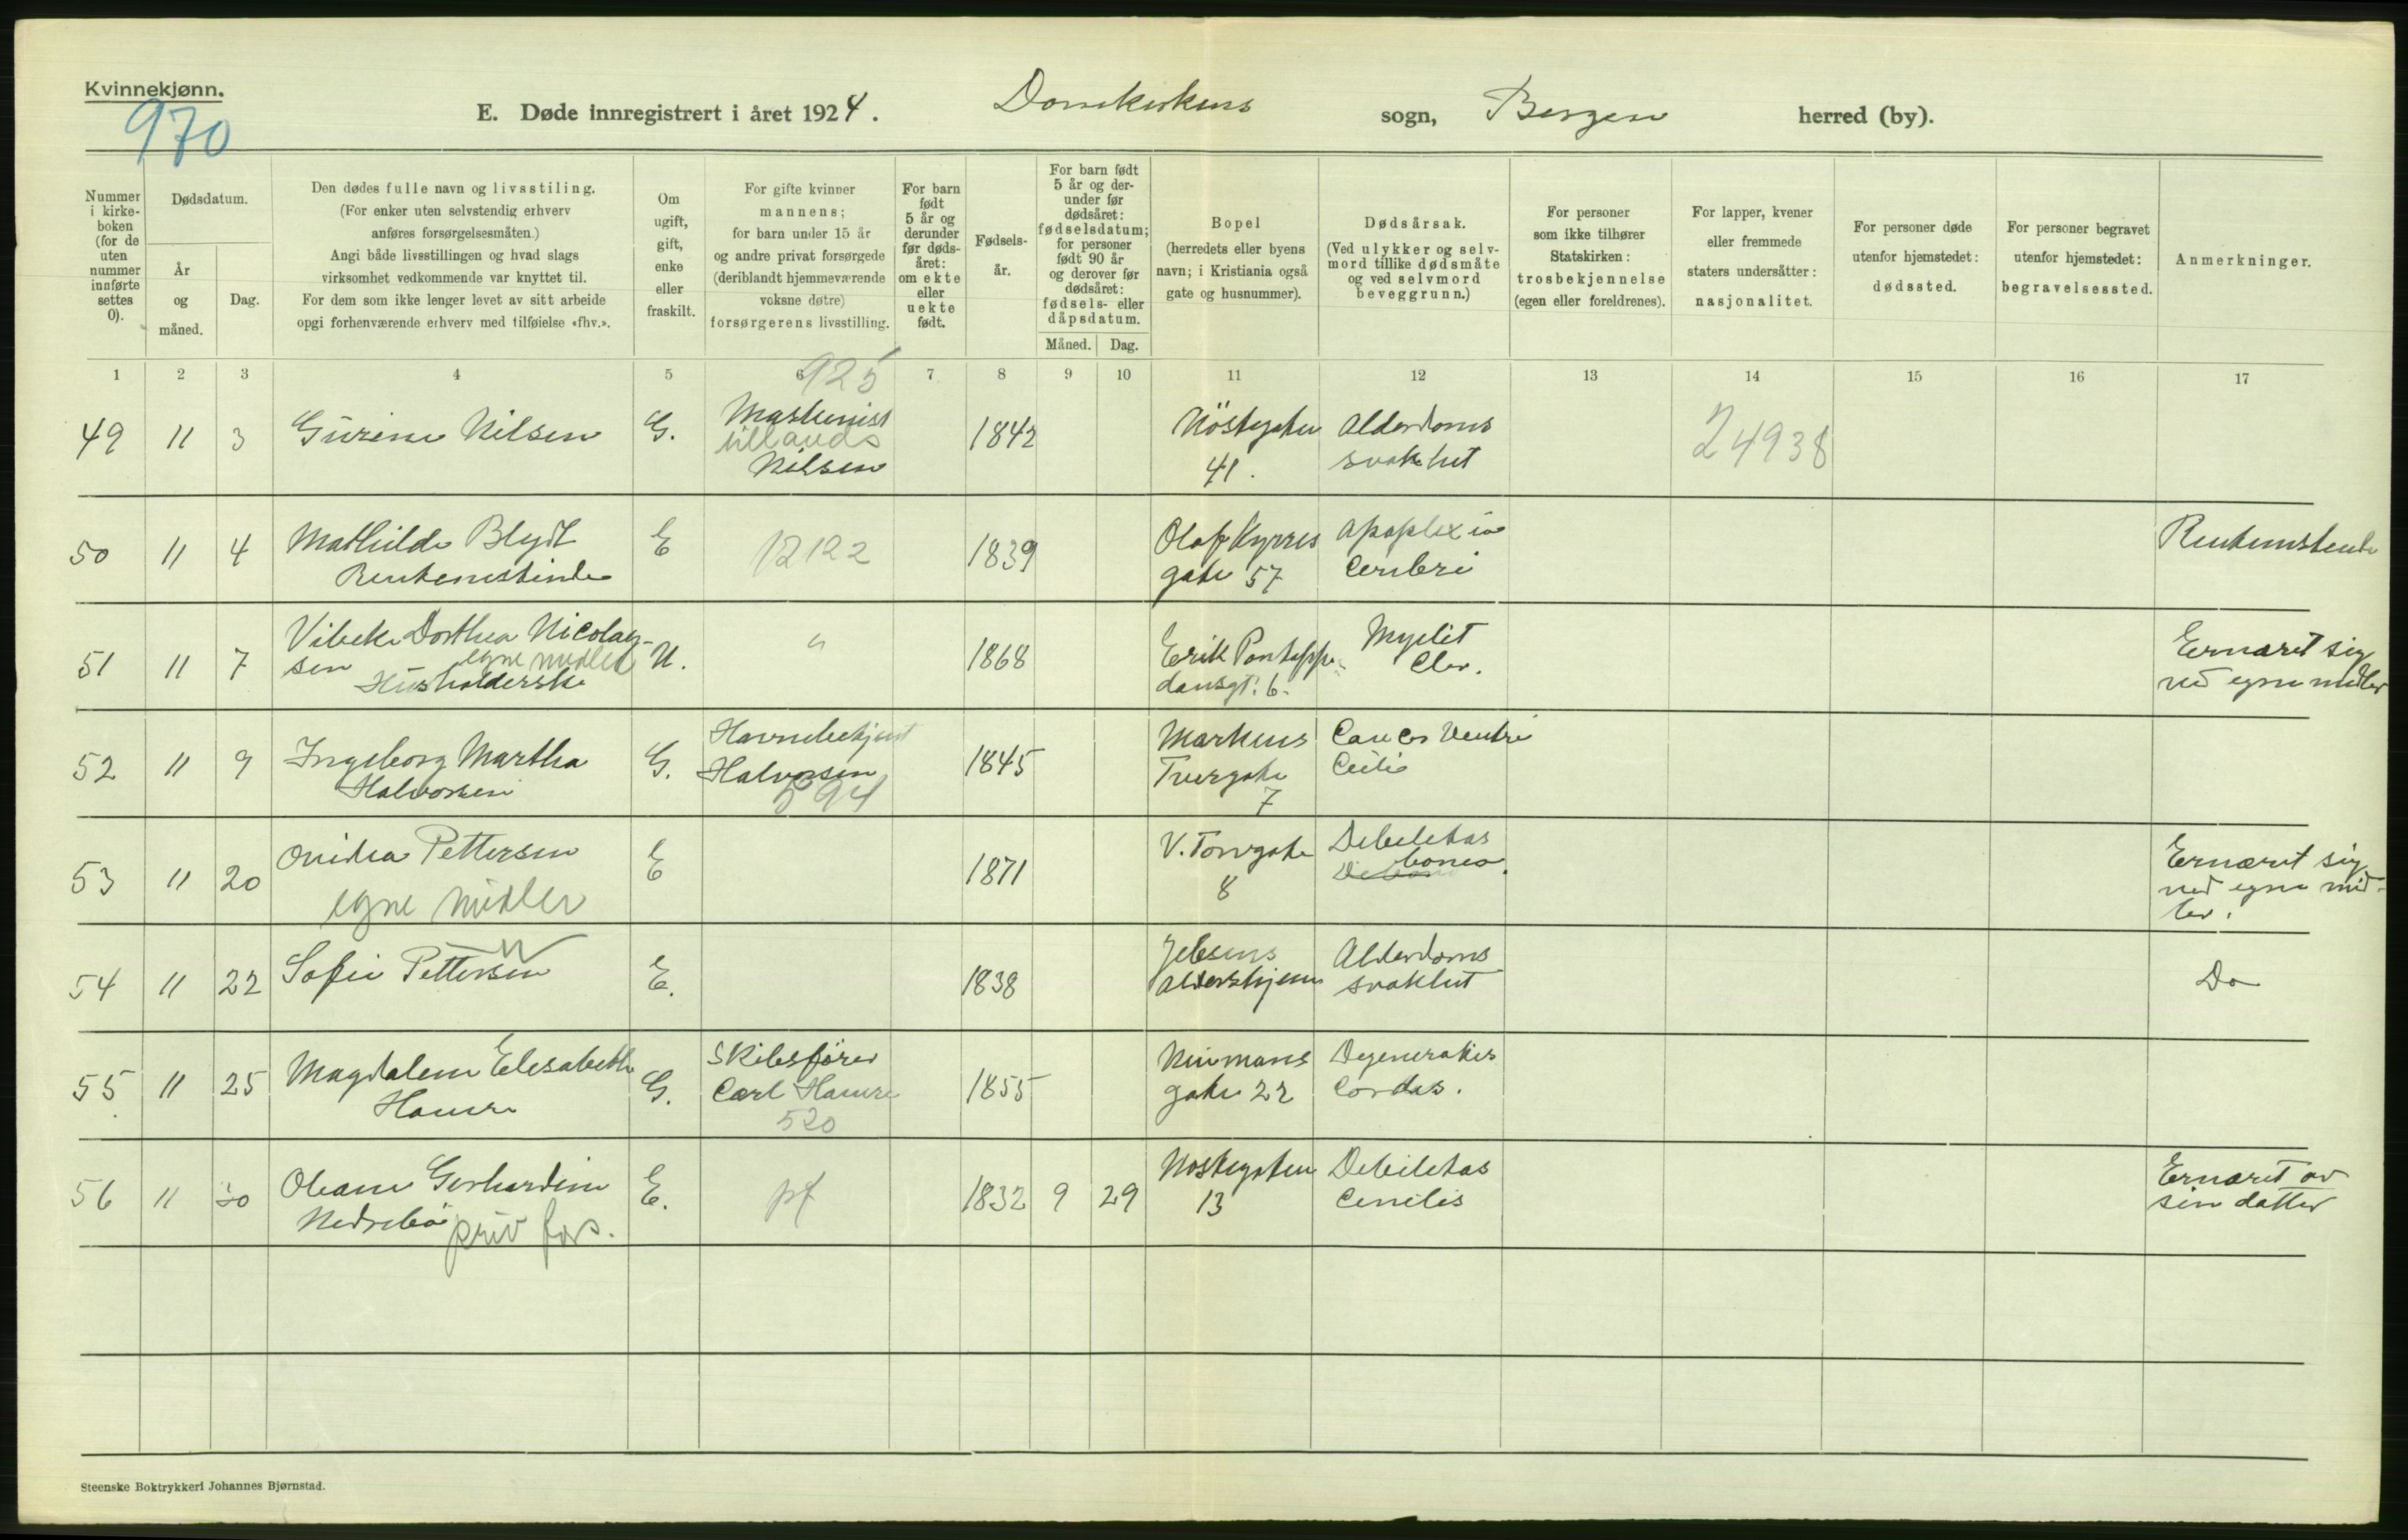 Kvinnekjønn.
970
E. Døde innregistrert i året 1924. Domkirkens sogn, Bergen herred (by).
Nummer i kirke-boken (for de uten nummer innførte settes 0).
Dødsdatum.
År og måned.
Dag.
Den dødes fulle navn og livsstiling.
(For enker uten selvstendig erhverv
anføres forsørgelsesmåten.)
Angi både livsstillingen og hvad slags
virksomhet vedkommende var knyttet til.
For dem som ikke lenger levet av sitt arbeide
opgi forhenværende erhverv med tilføielse «fhv.».
Om ugift, gift, enke eller fraskilt.
For gifte kvinner
mannens;
for barn under 15 år
og andre privat forsørgede
(deriblandt hjemmeværende
voksne døtre)
forsørgerens livsstilling.
For barn født 5 år og derunder før døds-året: om ekte eller uekte født.
Fødsels-år.
For barn født 5 år og der-under før dødsåret: fødselsdatum; for personer født 90 år og derover før dødsåret: fødsels- eller dåpsdatum.
Måned. Dag.
Bopel
(herredets eller byens
navn; i Kristiania også
gate og husnummer).
Dødsårsak.
(Ved ulykker og selv-
mord tillike dødsmåte
og ved selvmord
beveggrunn.)
For personer
som ikke tilhører
Statskirken:
trosbekjennelse
(egen eller foreldrenes).
For lapper, kvener
eller fremmede
staters undersåtter:
nasjonalitet.
For personer døde
utenfor hjemstedet:
dødssted.
For personer begravet
utenfor hjemstedet:
begravelsessted.
Anmerkninger.
1 2 3 4 5 6 7 8 9 10 11 12 13 14 15 16 17
925
49 11 3 Gurine Nilsen G. Maskinist
Nilsen 1842 Nöstegaten
41. Alderdoms
svakhet 24938
50 11 4 Mathilde Blydt
Rentenistinde E 12122 1839 Olaf Kyrres
gate 57 Apoplexia
Cerebri
51 11 7 Vibeke Dorthea Nicolay-
sen egne midler
Husholderske U. " 1868 Erik Pontoppi-
dansgt. 6. Myelit
Chr. Ernæret sig
ved egne midler
52 11 9 Ingeborg Martha
Halvorsen G. Havnebetjent
Halvorsen
594 1845 Markens
Tvergate
7 Cancer Ventri
53 11 20 Pettersen
egne midler E 1871 V. Torvgate
8 Debilitas Ernæret sig
ved egne mid-
ler.
54 11 22 Sofie Pettersen E. 1838 Jebsens
Aldershjem Alderdoms
svakhet Do
55 11 25 Magdalene Elisabeth
Hamre G. Skibsfører
Carl Hamre
520 1855 Neumans
gate 22 Degeneratio
Cordis.
56 11 30 Oleane Gerhardine
Nedrebö priv fors. E. pf 1832 9 29 Nöstegaten
13 Debilitas
Cenilis Ernæret av
sin datter
Steenske Boktrykkeri Johannes Bjørnstad.